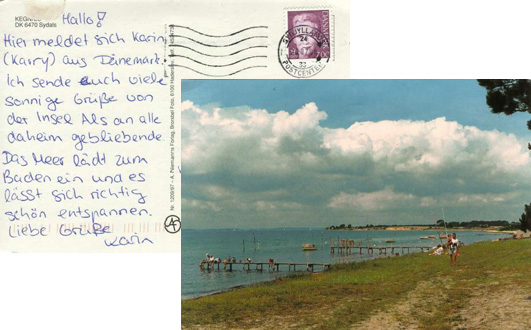 KEGNÆS
DK 6470 Sydals
Hallo!
Hier meldet sich Karin
(Kairy) aus Dänemark.
Ich sende euch viele
sonnige Grüße von
der Insel Als an alle
daheim gebliebende.
Das Meer lädt zum
Baden ein und es
lässt sich richtig
schön entspannen.
Liebe Grüße
Karin
SYDJYLLANDS
POSTCENTER